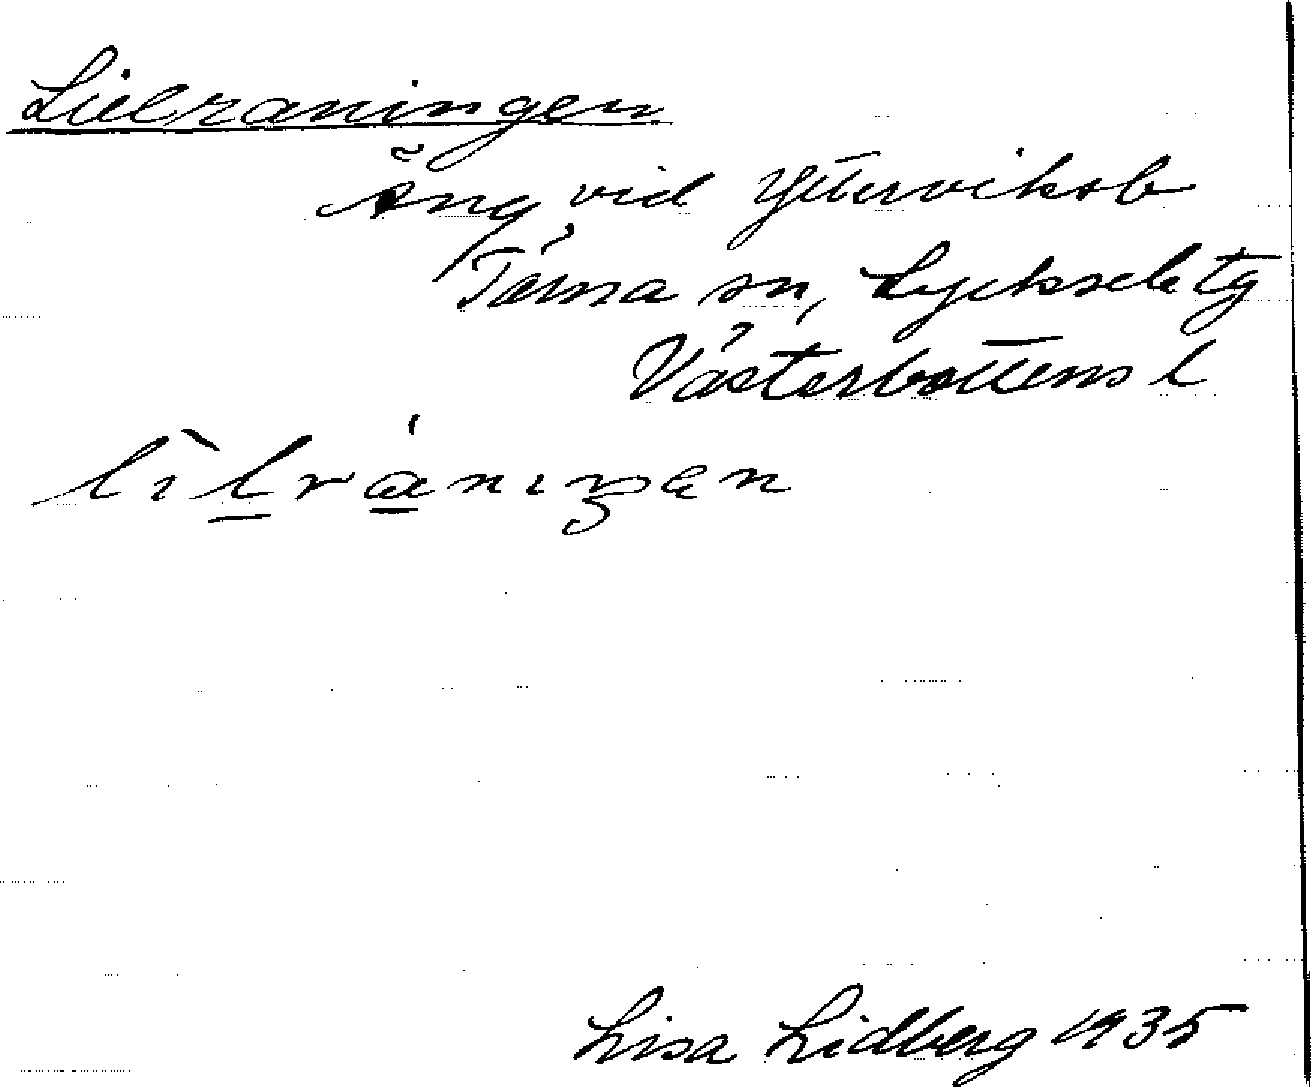 Lielraningen
Äng vid Ytterviksb
Tärna sn, Lycksele tg
Västerbottens l
lìlránıŋen
Lisa Lidberg 1935